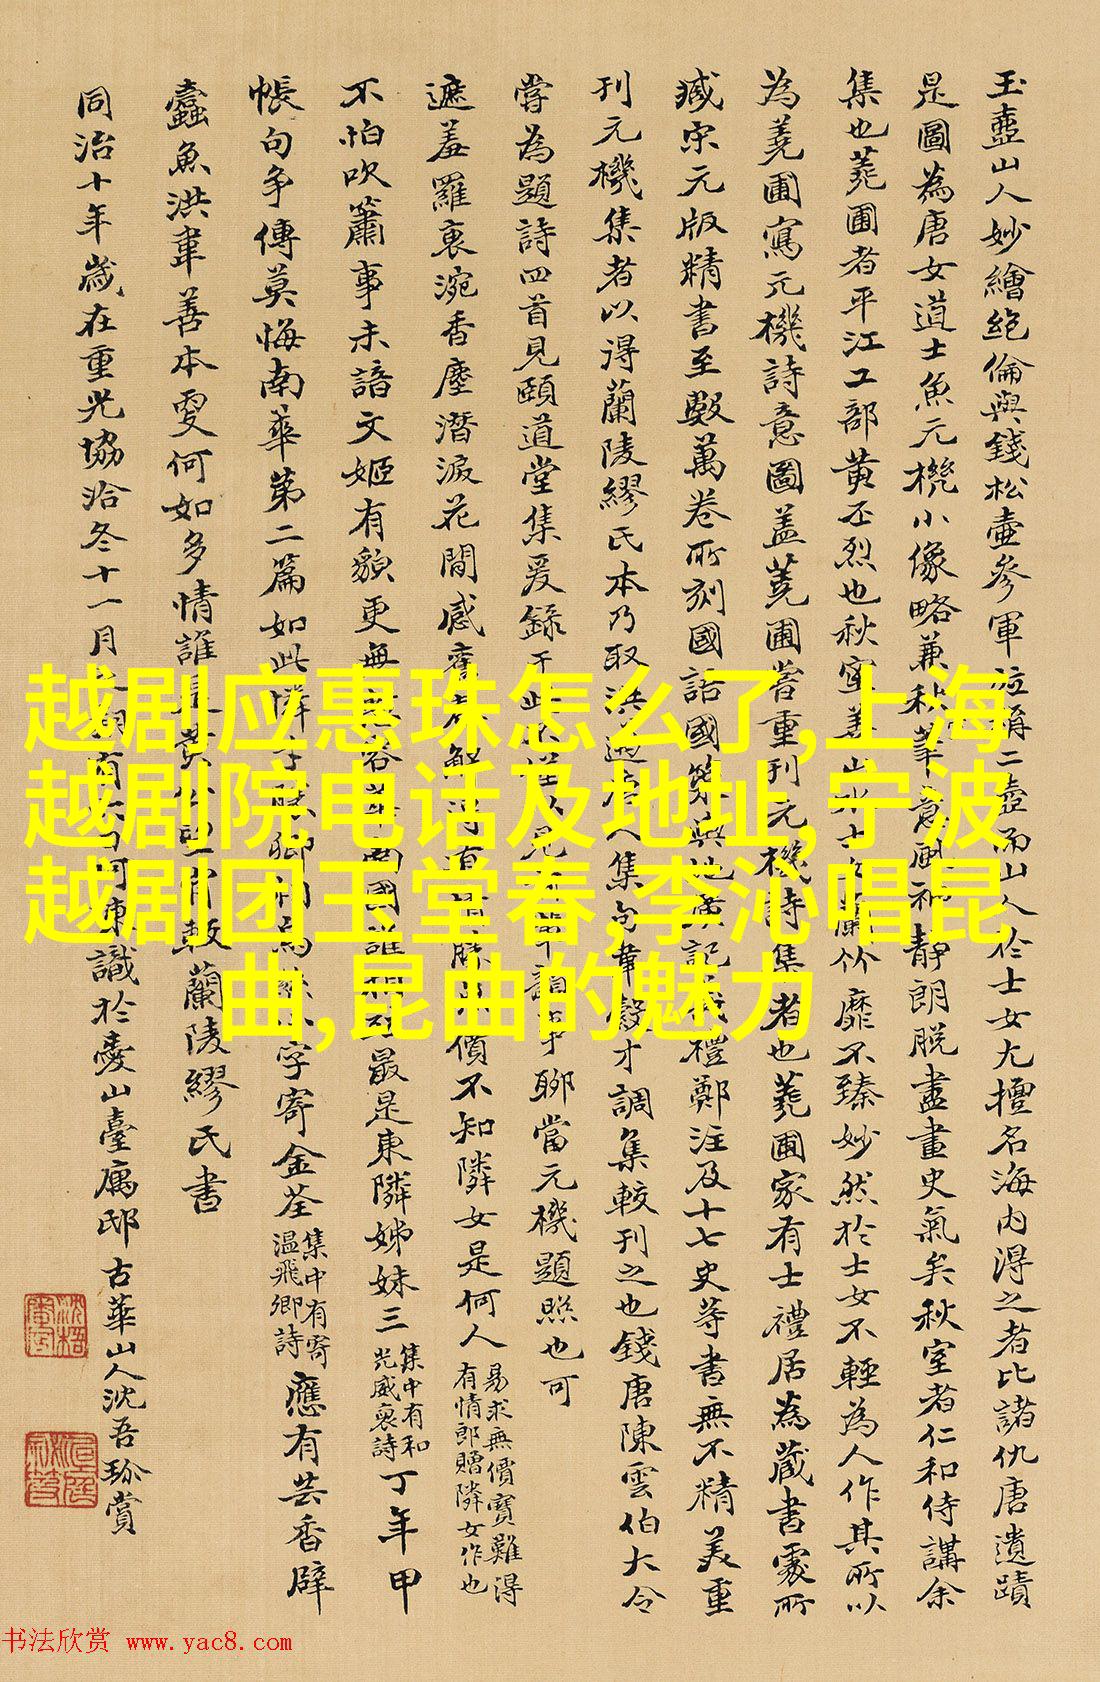 玉壺山人妙繪絶倫與錢松壺參軍並稱二壺而山人於士女尤擅名海内得之者比諸仇唐遺蹟
是圖為唐女道士魚元機小像略兼秋 意 神靜朗脱盡畫史氣矣秋室者仁和侍講余
集也蕘圃者平江工部黄丕烈也秋室善山水士女蘭竹靡不臻妙然於士女不輕為人作其所以
為蕘圃寫元機詩意圖蓋蕘圃嘗重刊元機詩集者也蕘圃家有士禮居為藏書處所
臧宋元版精書至數萬卷所刻國語國策與地廣記 禮鄭注及十七史等書無不精美重
刊元機集者以得蘭陵繆氏本乃取洪 唐人集句韋縠才調集較刊之也錢唐陳雲伯大令
嘗為題詩四首見頤道堂集爰録于此 聊當元機題照也可
遮羞羅裏涴香塵潛淚花間感舊 價不知隣女是何人
易求無價寶難得
有情郎贈隣女作也
不怕吹簫事未諳文姬有貌更無 最是東隣姊妹三
集中有和
光威裒詩
丁年甲
帳句争傳莫悔南華第二篇如此 字寄金荃
集中有寄
温飛卿詩
應有芸香辟
蠹魚洪韋善本更何如多情誰 蘭陵繆氏書
同治十年歲在重光協洽冬十一月 識於 山臺寓邸古華山人沈吾珎賞
越剧应惠珠怎么了,上海
越剧院电话及地址,宁波
越剧团玉堂春,李沁唱昆
曲,昆曲的魅力
书法欣赏 www.yac8.com